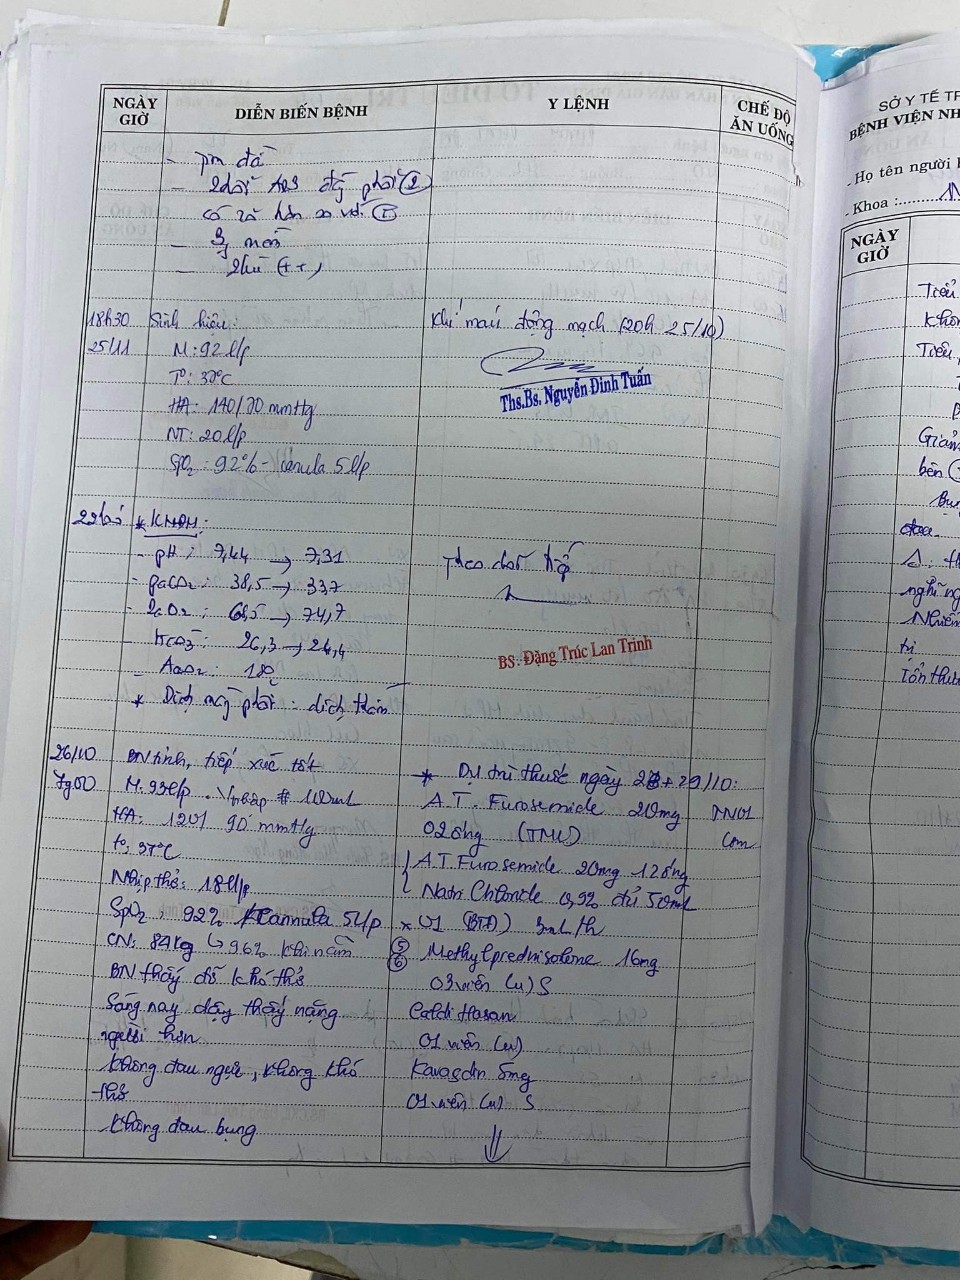 NGÀY GIỜ
DIỄN BIẾN BỆNH
Y LỆNH
CHẾ ĐỘ ĂN UỐNG
- Tm đã
có so với
- Phù (++)
18h30
25/11
Sinh hiệu:
M: 92 l/p
T°: 37°C
HA: 140/70 mmHg
NT: 20 l/p
SpO2: 92% - canula 5 l/p
Khí máu động mạch (20h 25/10)
Ths.Bs. Nguyễn Đình Tuấn
* KMĐM:
- pH: 7,44 → 7,31
- PaCO2: 38,5 → 337
→ 74,7
- HCO3-: 26,3 → 24,4
* Dịch màng phổi: dịch thấm
Theo dõi
BS. Đặng Trúc Lan Trinh
26/10
7g00
BN tỉnh, tiếp xúc tốt
M: 93 l/p
HA: 120/90 mmHg
t°: 37°C
Nhịp thở: 18 l/p
SpO2: 92% /Cannula 5 l/p
CN: 84kg ↳ 96% khi nằm
BN thấy đỡ khó thở
Sáng nay dậy thấy nặng
người hơn
Không đau ngực, không khó
thở
Không đau bụng
* Dự trù thuốc ngày 28+29/10:
A.T. Furosemide 20mg
02 ống (TMC)
A.T. Furosemide 20mg 12 ống
Natri Chloride 0,9% đủ 50ml
x 01 (BTĐ) 3ml/h
⑤
⑥ Methylprednisolone 16mg
03 viên (u) S
Caldihasan
01 viên (u)
Kavasdin 5mg
01 viên (u) S
⇓
DN01
Cơm
SỞ Y TẾ TP
BỆNH VIỆN NH
- Họ tên người
- Khoa :
NGÀY GIỜ
Tiểu
Không
Tiểu
Giảm
bên
đau.
nghĩ
Nhiễm
trị
Tổn thư